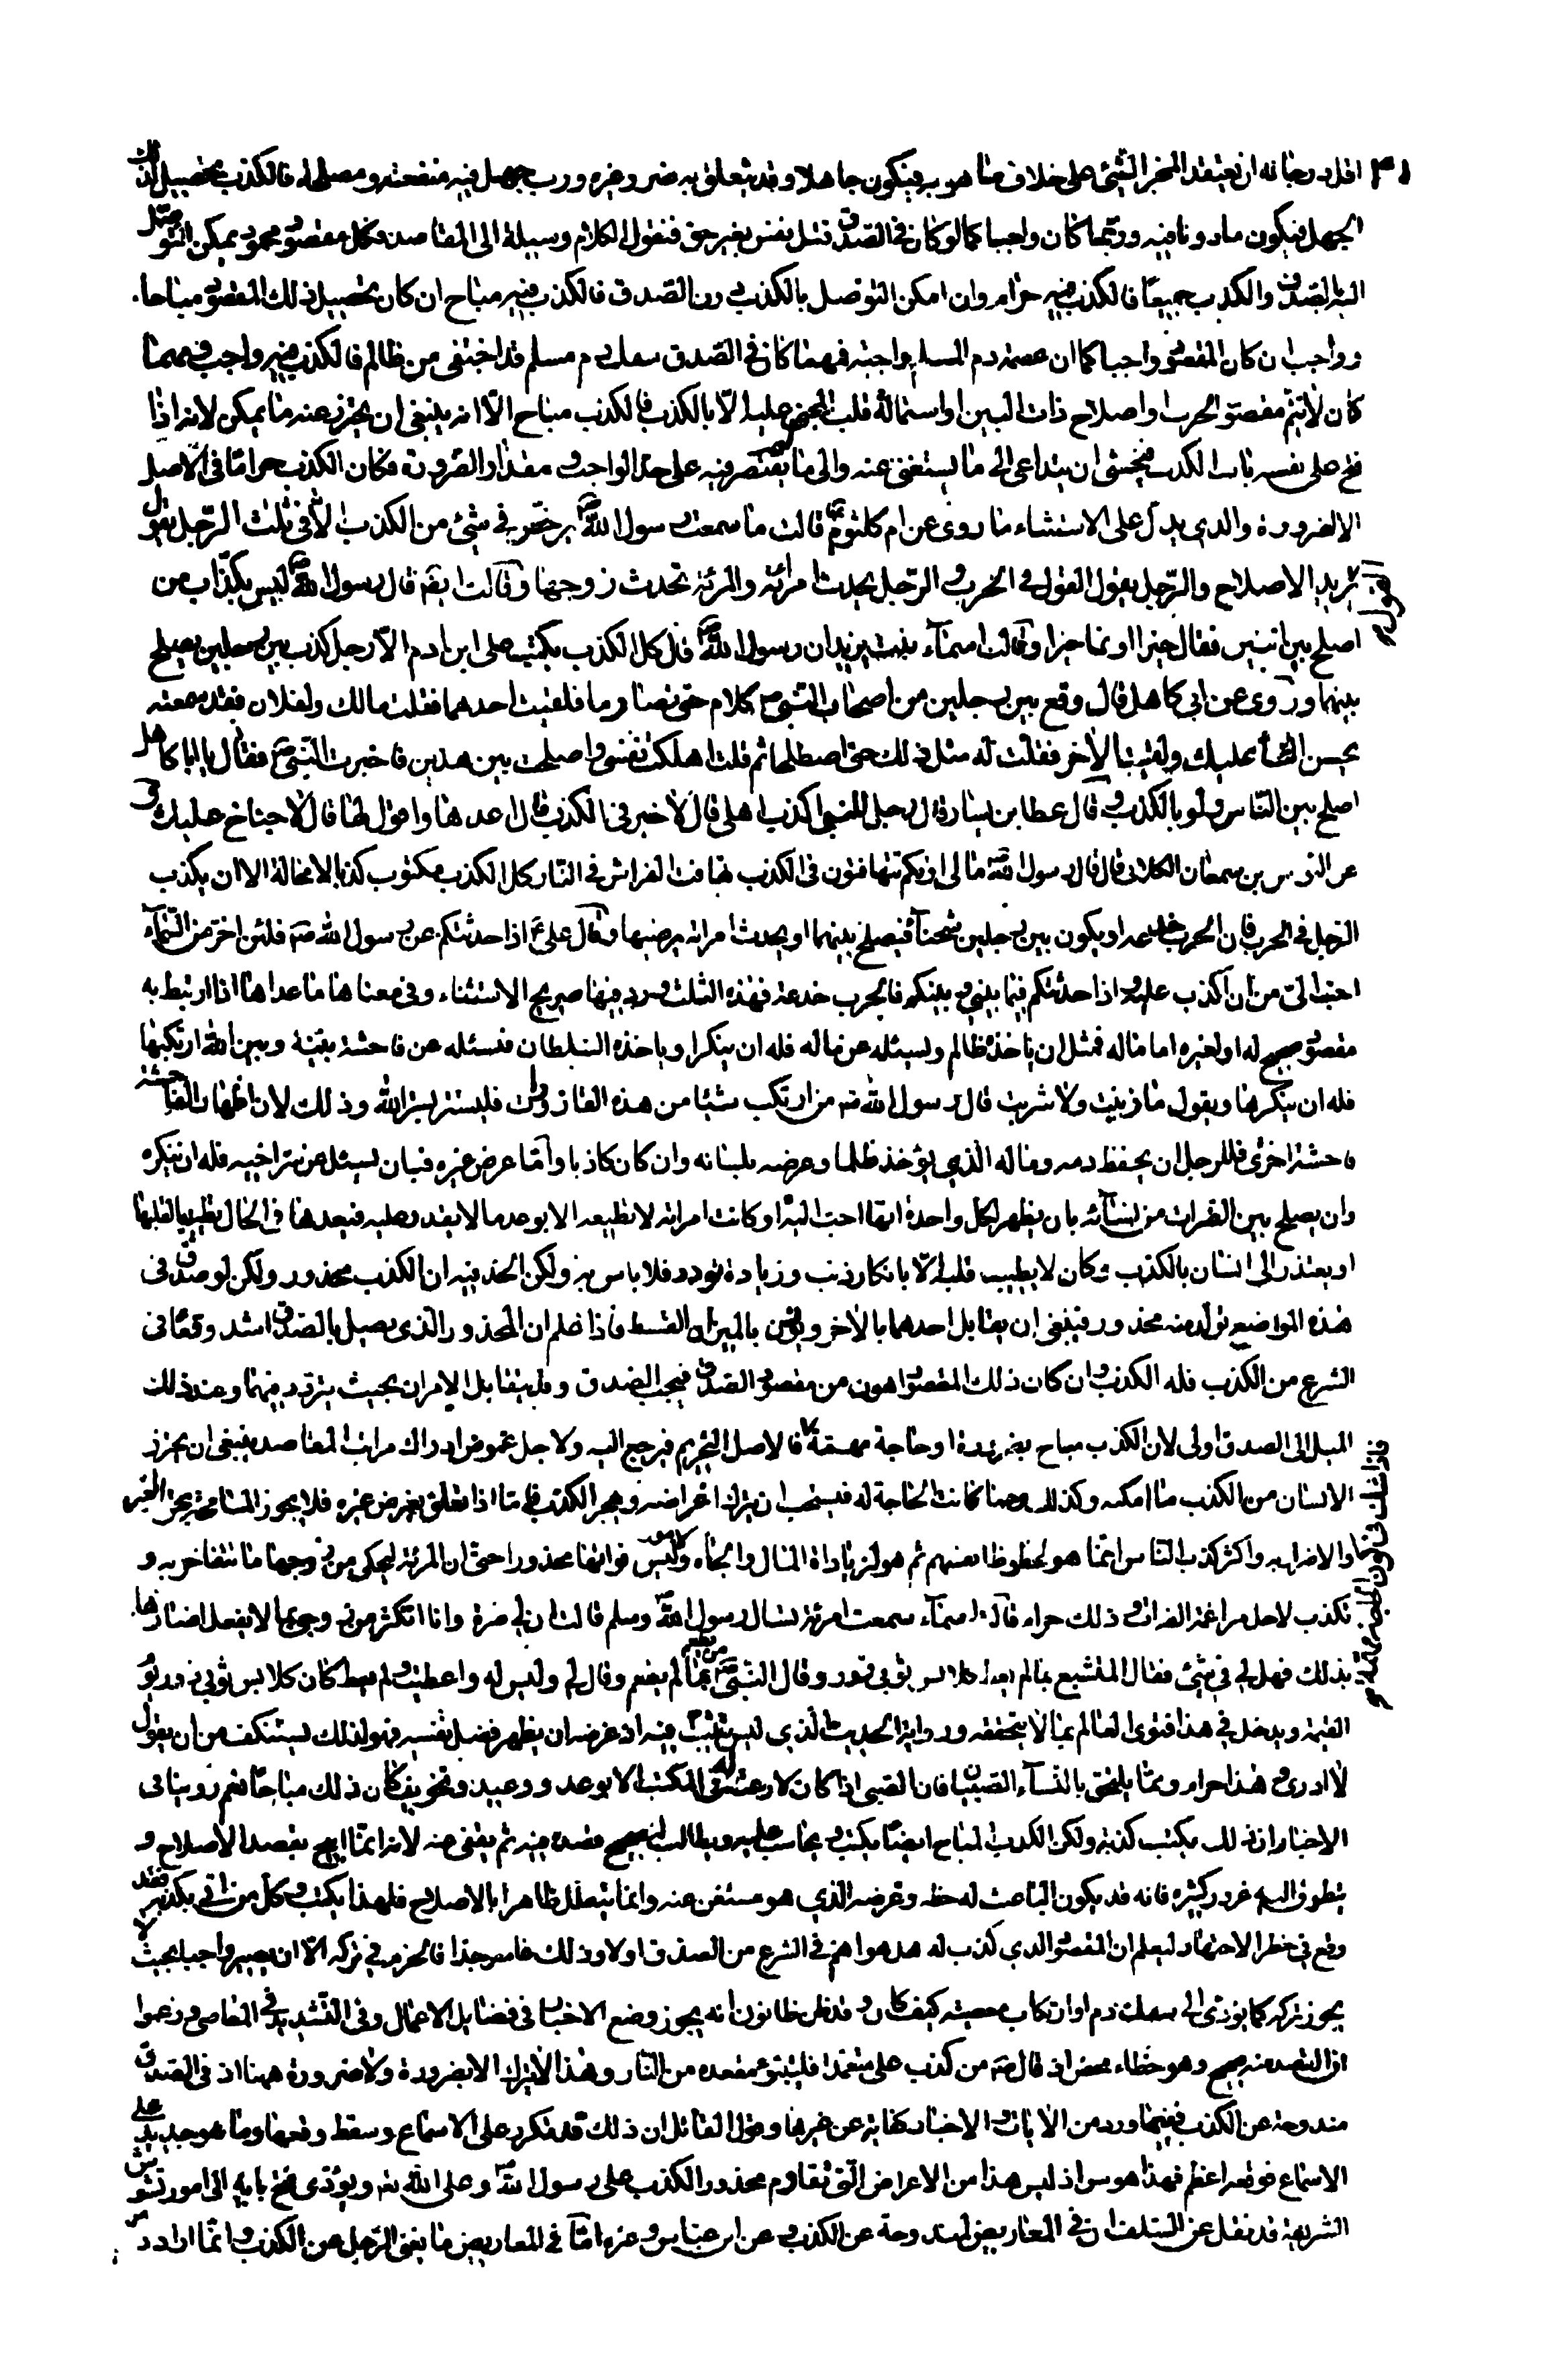 اقل درجاته ان يعتقد المخبر الشيئ على خلاف ما هو به فيكون جاهلا وقد يتعلق به ضرر غيره ورب جهل فيه منفعته ومصلحة فالكذب تحصيل لذلك
الجهل فيكون ماذونا فيه وربما كان واجبا كما لو كان في الصدق قتل نفس بغير حق فنقول الكلام وسيلة الى المقاصد فكل مقصود محمود يمكن التوصل
اليه بالصدق والكذب جميعا فالكذب فيه حرام وان امكن التوصل بالكذب دون الصدق فالكذب فيه مباح ان كان تحصيل ذلك المقصود مباحا
وواجب ان كان المقصود واجبا كما ان عصمة دم المسلم واجبة فمهما كان في الصدق سفك دم مسلم قد اختفى من ظالم فالكذب فيه واجب ومهما
كان لا يتم مقصود الحرب او اصلاح ذات البين او استمالة قلب المجنى عليه الا بالكذب فالكذب مباح الا انه ينبغي ان يحترز عنه ما يمكن لانه اذا
فتح على نفسه باب الكذب فيخشى ان يتداعى الى ما يستغنى عنه والى ما لا يقتصر فيه على حد الواجب ومقدار الضرورة فكان الكذب حراما في الاصل
الا لضرورة والذي يدل على الاستثناء ما روى عن ام كلثوم قالت ما سمعت رسول الله ص يرخص في شيئ من الكذب الا في ثلث الرجل يقول
القول يريد الاصلاح والرجل يقول القول في الحرب والرجل يحدث امرأته والمرئة تحدث زوجها وقالت ايضا قال رسول الله ص ليس بكذاب من
اصلح بين اثنين فقال خيرا او نما خيرا وقالت اسماء بنت يزيد ان رسول الله ص قال كل الكذب يكتب على ابن ادم الا رجل كذب بين رجلين يصلح
بينهما وروى عن ابي كاهل قال وقع بين رجلين من اصحاب النبي ص كلام حتى تصارما فلقيت احدهما فقلت مالك ولفلان فقد سمعته
يحسن الثناء عليك ولقيت الاخر فقلت له مثل ذلك حتى اصطلحا ثم قلت اهلكت نفسي واصلحت بين هذين فاخبرت النبي ص فقال يا ابا كاهل
اصلح بين الناس ولو بالكذب وقال عطا بن يسار قال رجل للنبي اكذب اهلى قال لا خير في الكذب قال اعدها واقول لها قال لا جناح عليك و
عن النواس بن سمعان الكلابي قال قال رسول الله ص ما لي اريكم تتهافتون في الكذب تهافت الفراش في النار كل الكذب مكتوب كذبا لا محالة الا ان يكذب
الرجل في الحرب فان الحرب خدعة او يكون بين رجلين شحناء فيصلح بينهما او يحدث امراته يرضيها وقال علي ع اذا حدثتكم عن رسول الله ص فلئن اخر من السماء
احب الى من ان اكذب عليه واذا حدثتكم فيما بيني وبينكم فالحرب خدعة فهذه الثلث ورد فيها صريح الاستثناء وفي معناها ما عداها اذا ارتبط به
مقصود صحيح له او لغيره اما ماله فمثل ان ياخذه ظالم ويسئله عن ماله فله ان ينكر او ياخذه السلطان فيسئله عن فاحشة بينه وبين الله ارتكبها
فله ان ينكرها ويقول ما زنيت ولا شربت قال رسول الله ص من ارتكب شيئا من هذه القاذورات فليستتر بستر الله وذلك لان اظهار الفاحشة
فاحشة اخرى فللرجل ان يحفظ دمه وماله الذي يؤخذ ظلما وعرضه بلسانه وان كان كاذبا واما عرض غيره فبان يسئل عن سر اخيه فله ان ينكره
وان يصلح بين الضرات من نسائه بان يظهر لكل واحدة انها احب اليه او كانت امراته لا تطيعه الا بوعد ما لا يقدر عليه فيعدها في الحال تطييبا لقلبها
او يعتذر الى انسان بالكذب وكان لا يطيب قلبه الا بانكار ذنب وزيادة تودد فلا باس به ولكن الحد فيه ان الكذب محذور ولكن لو صدق في
هذه المواضع تولد منه محذور فينبغي ان يقابل احدهما بالاخر ويوزن بالميزان القسط فاذا علم ان المحذور الذي يحصل بالصدق اشد وقعا في
الشرع من الكذب فله الكذب وان كان ذلك المقصود اهون من مقصود الصدق فيجب الصدق وقد يتقابل الامران بحيث يتردد فيهما وعند ذلك
الميل الى الصدق اولى لان الكذب مباح بضرورة او حاجة مهمة فالاصل التحريم فيرجع اليه ولاجل غموض ادراك مراتب المقاصد ينبغي ان يحترز
الانسان من الكذب ما امكنه وكذلك مهما كانت الحاجة له فيستحب ان يترك اغراضه ويهجر الكذب فاما اذا تعلق بغرض غيره فلا يجوز المسامحة بحق الغير
والاضرار به واكثر كذب الناس انما هو لحظوظ انفسهم ثم هو لزيادة المال والجاه ولامور ليس فواتها محذورا حتى ان المرئة ليحكى من زوجها ما تتفاخر به و
تكذب لاجل مراغمة الضرات وذلك حرام قالت اسماء سمعت امرئة تسال رسول الله ص وسلم قالت ان لي ضرة وانا اتكثر من زوجي بما لا يفعل اضارها
بذلك فهل لي فيه شيئ فقال المتشبع بما لم يعط كلابس ثوبي زور وقال النبي ص من تطعم بما لم يطعم وقال لي وليس له واعطيت ولم يعط كان كلابس ثوبي زور يوم
القيمة ويدخل في هذا فتوى العالم بما لا يتحققه ورواية الحديث الذي ليس يثبت فيه اذ غرضه ان يظهر فضل نفسه فهو لذلك يستنكف من ان يقول
لا ادري وهذا حرام ومما يلتحق بالنساء الصبيان فان الصبي اذا كان لا رغبة له في المكتب الا بوعد ووعيد وتخويف كان ذلك مباحا نعم روينا في
الاخبار ان ذلك يكتب كذبة ولكن الكذب المباح ايضا يكتب ويحاسب عليه ويطالب لتصحيح قصده فيه ثم يعفى عنه لانه انما ابيح بقصد الاصلاح و
يتطرق اليه غرور كثيرة فانه قد يكون الباعث له حظه وغرضه الذي هو مستغن عنه وانما يتعلل ظاهرا بالاصلاح فلهذا يكتب وكل من اتى بكذبة فقد
وقع في خطر الاجتهاد ليعلم ان المقصود الذي كذب له هل هو اهم في الشرع من الصدق او لا وذلك غامض جدا فالحزم في تركه الا ان يصير واجبا بحيث لا
يجوز تركه كما يؤدي الى سفك دم او ارتكاب معصية كيف كان وقد ظن ظانون انه يجوز وضع الاخبار في فضايل الاعمال وفي التشديد في المعاصي وزعموا
ان القصد منه صحيح وهو خطاء محض اذ قال ص من كذب على متعمدا فليتبوء مقعده من النار وهذا لا يترك الا بضرورة ولا ضرورة ههنا اذ في الصدق
مندوحة عن الكذب ففيما ورد من الايات والاخبار كفاية عن غيرها وقول القائل ان ذلك قد تكرر على الاسماع وسقط وقعها وما هو جديد على
الاسماع فوقعه اعظم فهذا هوس اذ ليس هذا من الاغراض التي تقاوم محذور الكذب على رسول الله ص وعلى الله تع ويؤدي فتح بابه الى امور تشوش
الشريعة قد نقل عن السلف ان في المعاريض لمندوحة عن الكذب وعن ابن عباس وغيره اما في المعاريض ما يغني الرجل عن الكذب وانما ارادوا